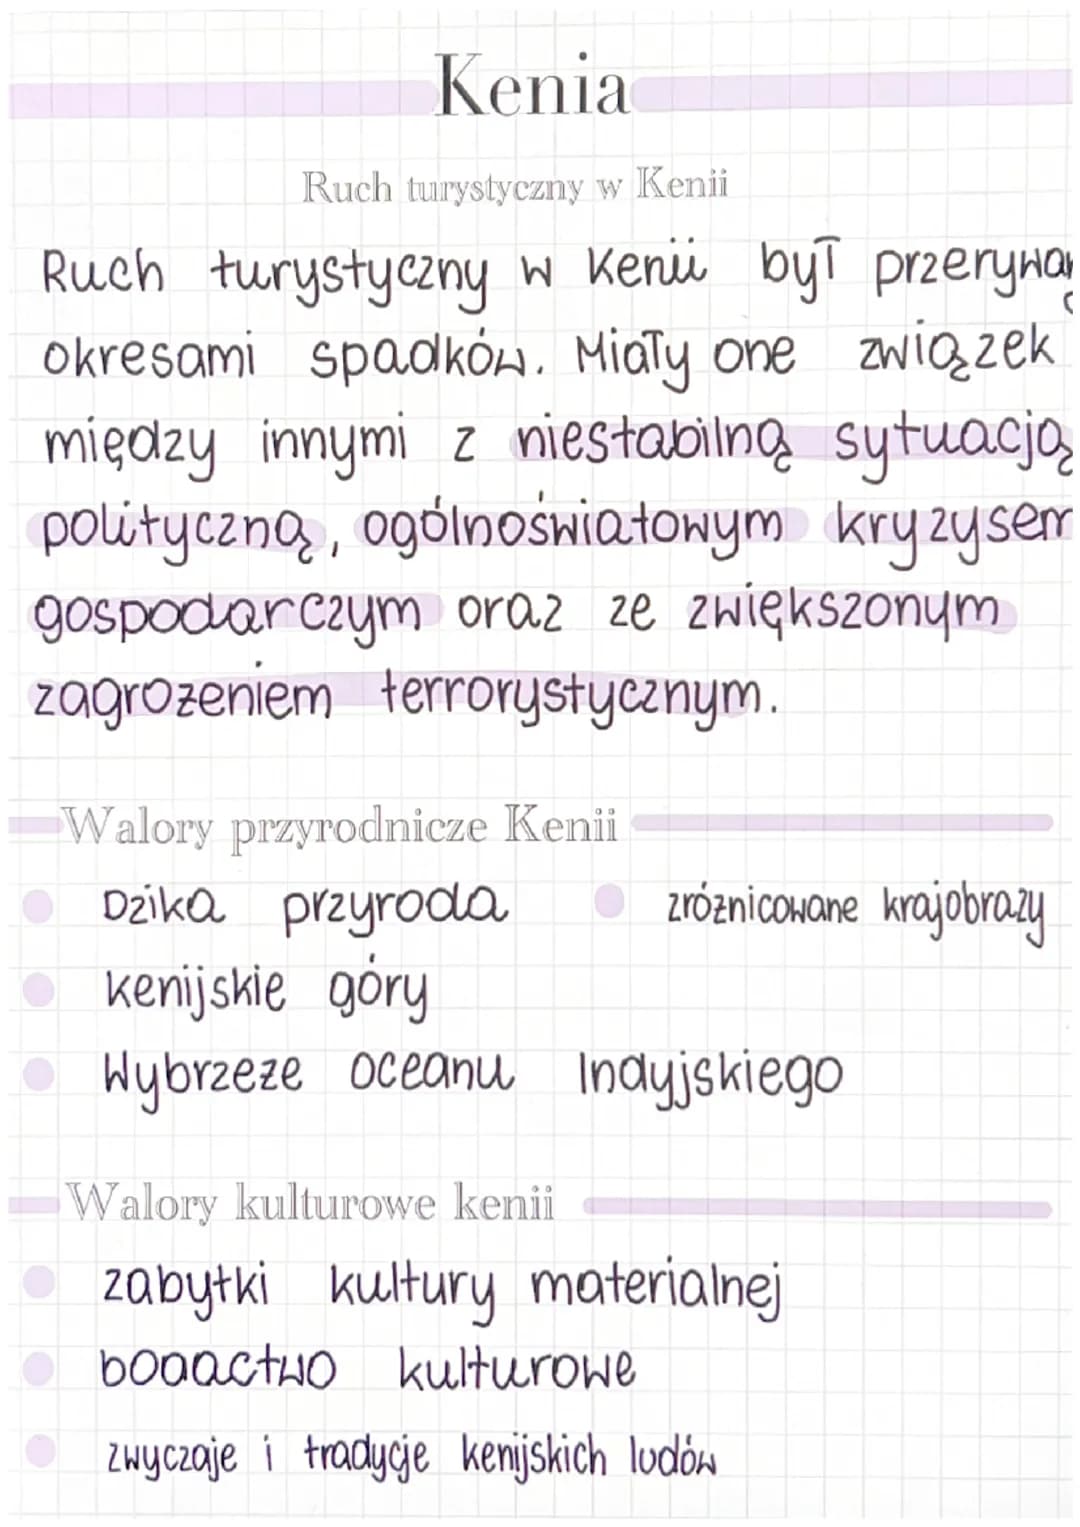 Kenia
Ruch turystyczny w Kenii
Ruch turystyczny w Kenii był przerywan
okresami spadków. Miały one związek
między innymi z niestabilną sytuacją
polityczną, ogólnoświatowym kryzysem
gospodarczym oraz ze zwiększonym
zagrożeniem terrorystycznym.
Walory przyrodnicze Kenii
Dzika przyroda
zróżnicowane krajobrazy
kenijskie góry
Wybrzeże oceanu Indyjskiego
Walory kulturowe kenii
zabytki kultury materialnej
bogactwo kulturowe
zwyczaje i tradycje kenijskich ludów